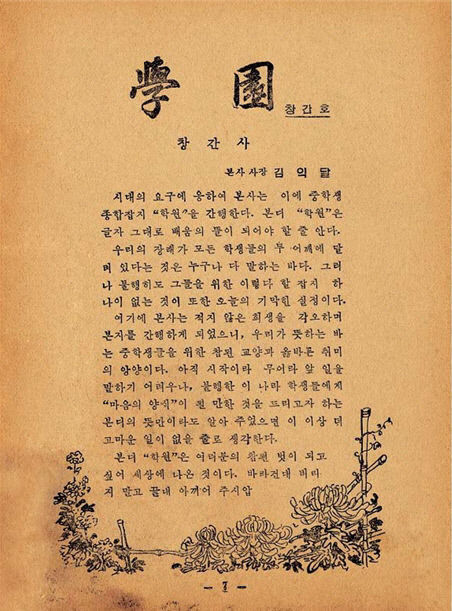 學園
창간호
창간사
본사 사장 김익달
시대의 요구에 응하여 본사는 이에 중학생
종합잡지 “학원”을 간행한다. 본디 “학원”은
글자 그대로 배움의 뜰이 되어야 할 줄 안다.
우리의 장래가 모든 학생들의 두 어깨에 달
려 있다는 것은 누구나 다 말하는 바다. 그러
나 불행히도 그들을 위한 이렇다 할 잡지 하
나이 없는 것이 또한 오늘의 기막힌 실정이다.
여기에 본사는 적지 않은 희생을 각오하며
본지를 간행하게 되었으니, 우리가 뜻하는 바
는 중학생들을 위한 참된 교양과 올바른 취미
의 앙양이다. 아직 시작이라 무어라 앞 일을
말하기 어려우나, 불행한 이 나라 학생들에게
“마음의 양식”이 될 만한 것을 드리고자 하는
본디의 뜻만이라도 알아 주었으면 이 이상 더
고마운 일이 없을 줄로 생각한다.
본디 “학원”은 여러분의 참된 벗이 되고
싶어 세상에 나온 것이다. 바라건대 버리
지 말고 끝내 아끼어 주시압
— 7 —